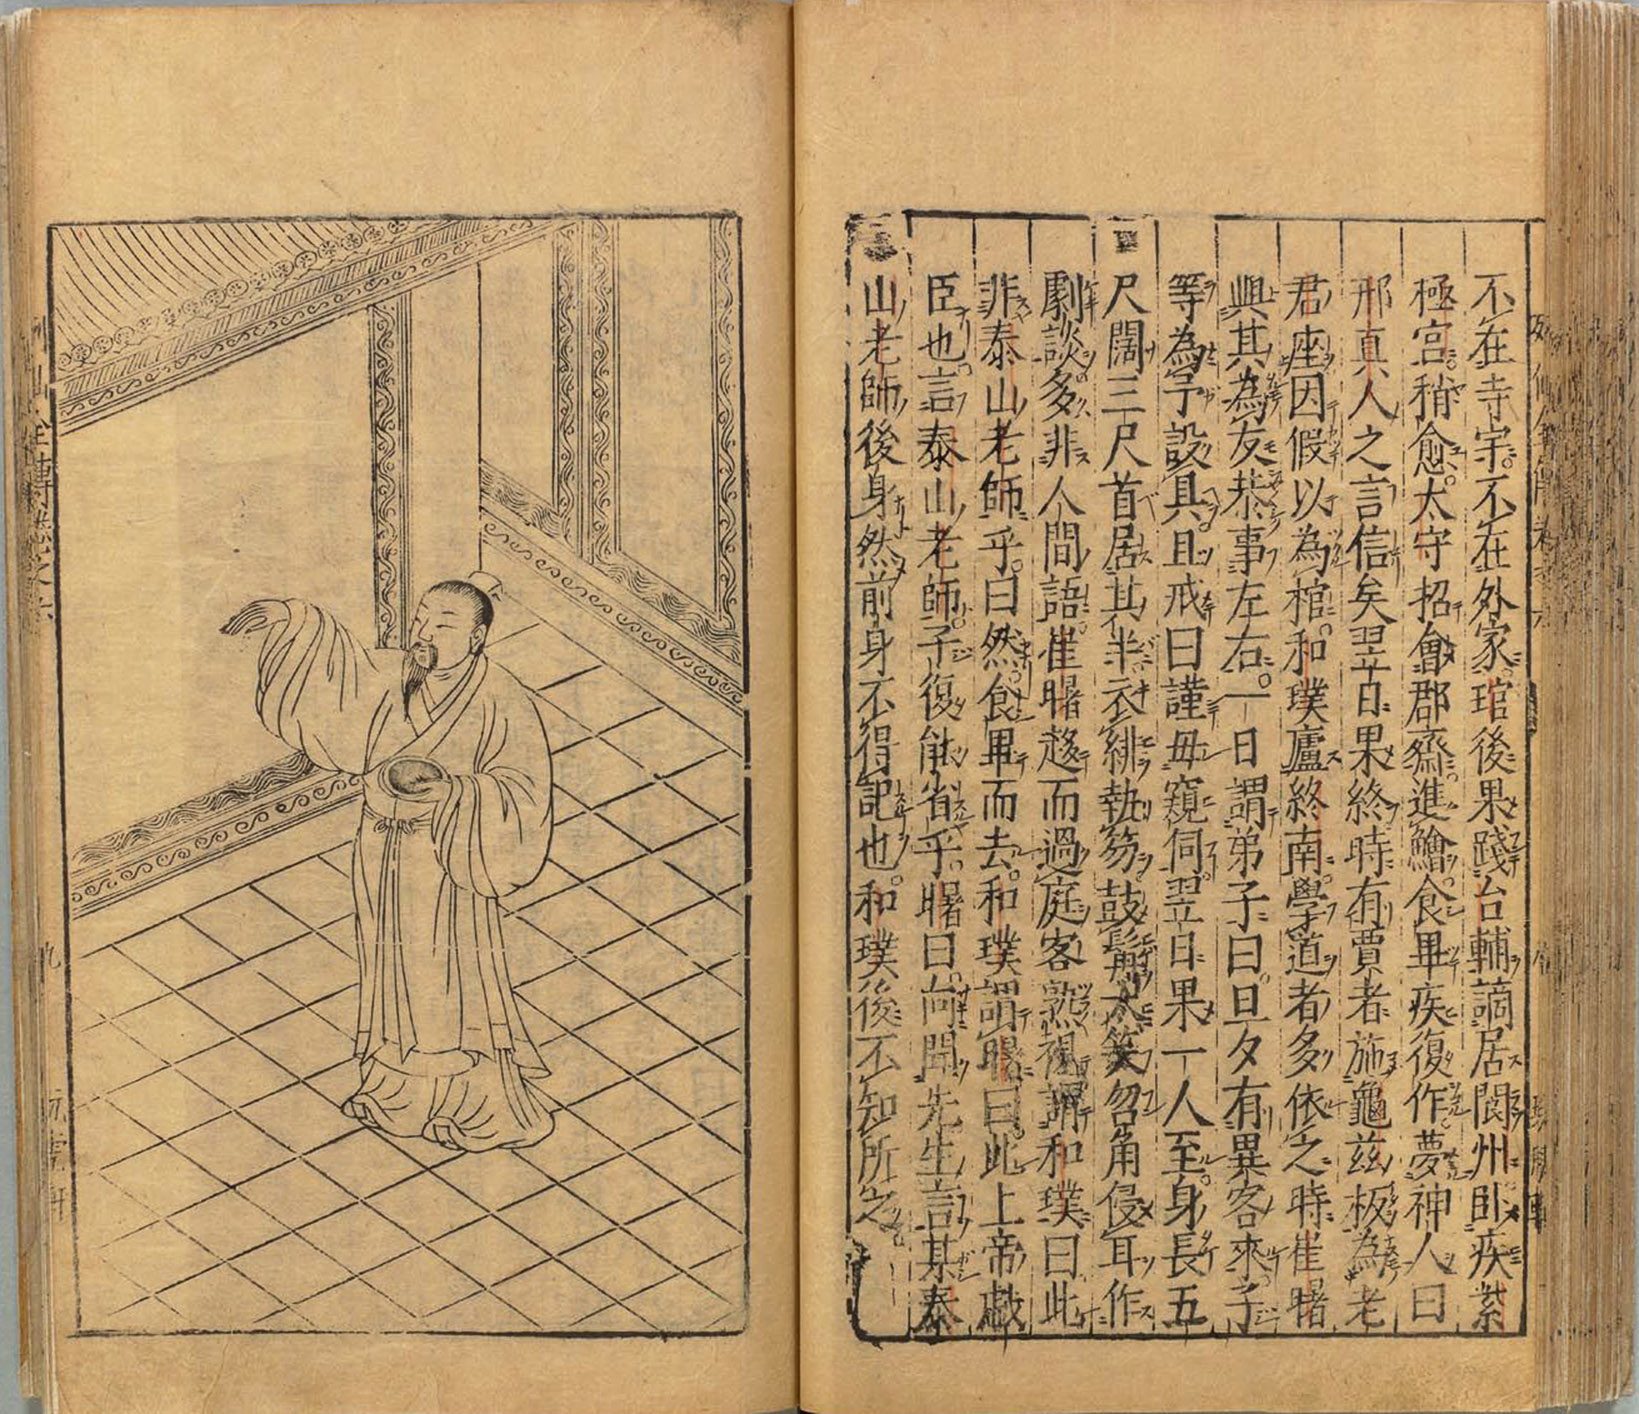 不在寺宇。不在外家琯後果踐台輔謫居閬州卧疾紫
極宮。稍愈。太守招會郡齋進鱠食畢疾復作夢神人曰
邢真人之言信矣翌日果終時有賈者施龜玆板為老
君座因假以為棺。和璞廬終南。學道者多依之時崔曙
與其為友恭事左右。一日謂弟子曰。旦夕有異客來。子
等為予設具且戒曰謹毋窺伺。翌日果一人至。身長五
尺闊三尺首居其半衣緋執笏鼓髯大笑吻角侵耳作
劇談多非人間語。崔曙趍而過庭客熟視謂和璞曰此
非泰山老師乎。曰然。食畢而去。和璞謂曙曰。此上帝戲
臣也。言泰山老師。子復能省乎。曙曰。向聞先生言某泰
山老師後身然前身不得記也。和璞後不知所之
列仙全傳卷之六
九